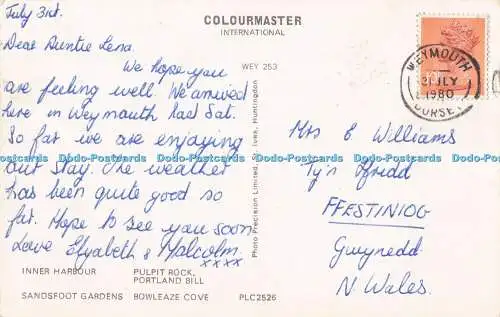 July 3rd.
COLOURMASTER
INTERNATIONAL
Dear Auntie Lena
WEY 253
We hope you
are feeling well. We arrived
here in Weymouth last Sat.
So far we are enjoying
our stay. The weather
has been quite good so
far. Hope to see you soon
Love Elizabeth & Malcolm.
xxxx
INNER HARBOUR PULPIT ROCK,
PORTLAND BILL
SANDSFOOT GARDENS BOWLEAZE COVE PLC2526
Photo Precision Limited, St. Ives, Huntingdon
WEYMOUTH
JLY
1980
DORSET
Mrs E Williams
Ty'n Ffridd
FFESTINIOG
Gwynedd
N Wales.
Dodo-Postcards Dodo-Postcards Dodo-Postcards Dodo-Postcards Dodo-Postcards